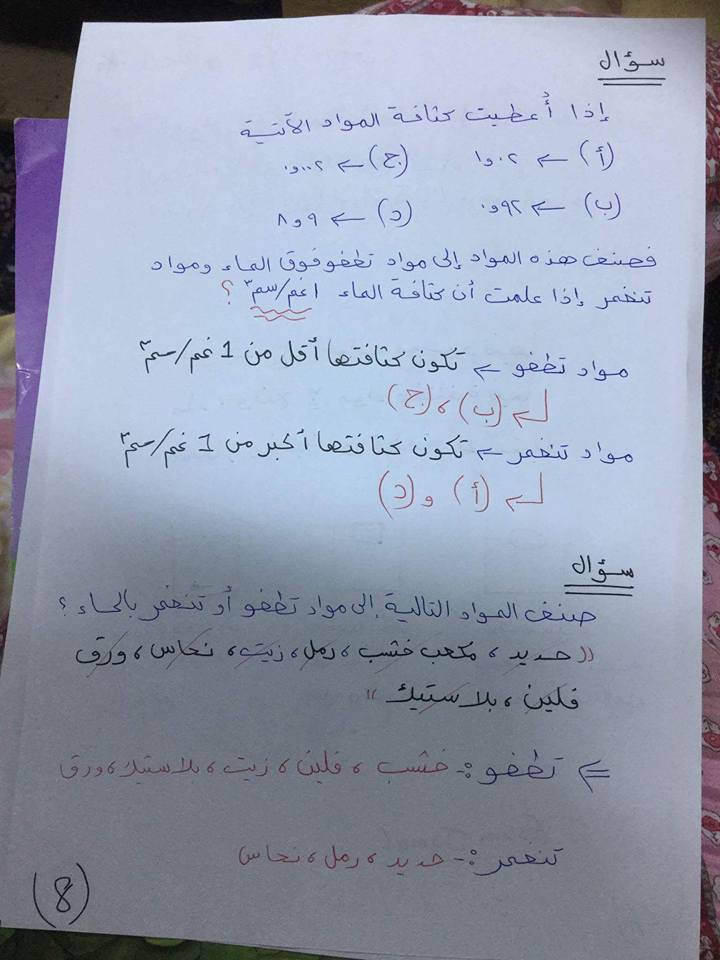 سؤال
إذا أُعطيت كثافة المواد الآتية
(أ) ← ١٫٠٢ (ج) ← ٠٫٠٠٢
(ب) ← ٠٫٩٢ (د) ← ٨٫٩
فصنف هذه المواد إلى مواد تطفو فوق الماء ومواد
تنغمر إذا علمت أن كثافة الماء ١غم/سم٣ ؟
مواد تطفو ← تكون كثافتها أقل من 1 غم/سم٣
← (ب) ، (ج)
مواد تنغمر ← تكون كثافتها أكبر من 1 غم/سم٣
← (أ) و (د)
سؤال
صنف المواد التالية إلى مواد تطفو أو تنغمر بالماء ؟
(( حديد ، مكعب خشب ، رمل ، زيت ، نحاس ، ورق
فلين ، بلاستيك ))
⇐ تطفو :- خشب ، فلين ، زيت ، بلاستيك ، ورق
تنغمر :- حديد ، رمل ، نحاس
(8)